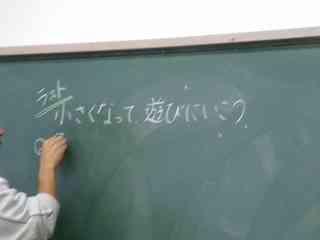 ラスト
小さくなって、遊びにいこう。